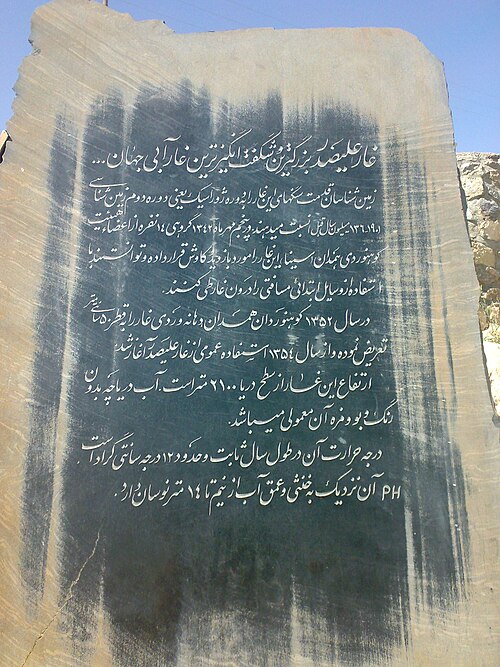 غار علیصدر بزرگترین و شگفت انگیزترین غار آبی جهان ...
زمین شناسان قدمت سنگهای این غار را به دوره ژوراسیک یعنی دوره دوم زمین شناسی
۱۳۶-۱۹۰ میلیون سال قبل نسبت میدهند. در پنجم مهرماه ۱۳۴۲ گروهی ۱۴ نفره از اعضاء هیئت
کوهنوردی همدان آسیتا این غار را مورد بازدید و کاوش قرار داده و توانستند با
استفاده از وسایل ابتدائی مسافتی را درون غار طی کنند.
در سال ۱۳۵۲ کوهنوردان همدان دهانه ورودی غار را به قطر ۵۰ سانتی متر
تعریض نموده و از سال ۱۳۵۴ استفاده عمومی از غار علیصدر آغاز شد.
ارتفاع این غار از سطح دریا ۲۱۰۰ متر است. آب دریاچه بدون
رنگ و بو و مزه آن معمولی میباشد.
درجه حرارت آن در طول سال ثابت و حدود ۱۲ درجه سانتی گراد است
PH آن نزدیک به خنثی و عمق آب از نیم تا ۱۴ متر نوسان دارد.